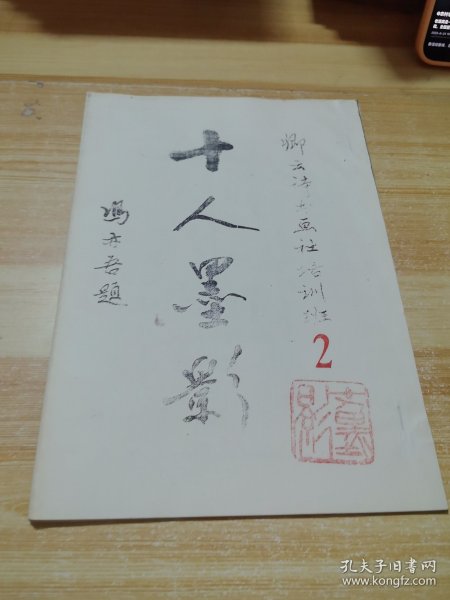 卿云诗书画社培训班
2
十人墨影
冯亦吾题
孔夫子旧书网
www.kongfz.com